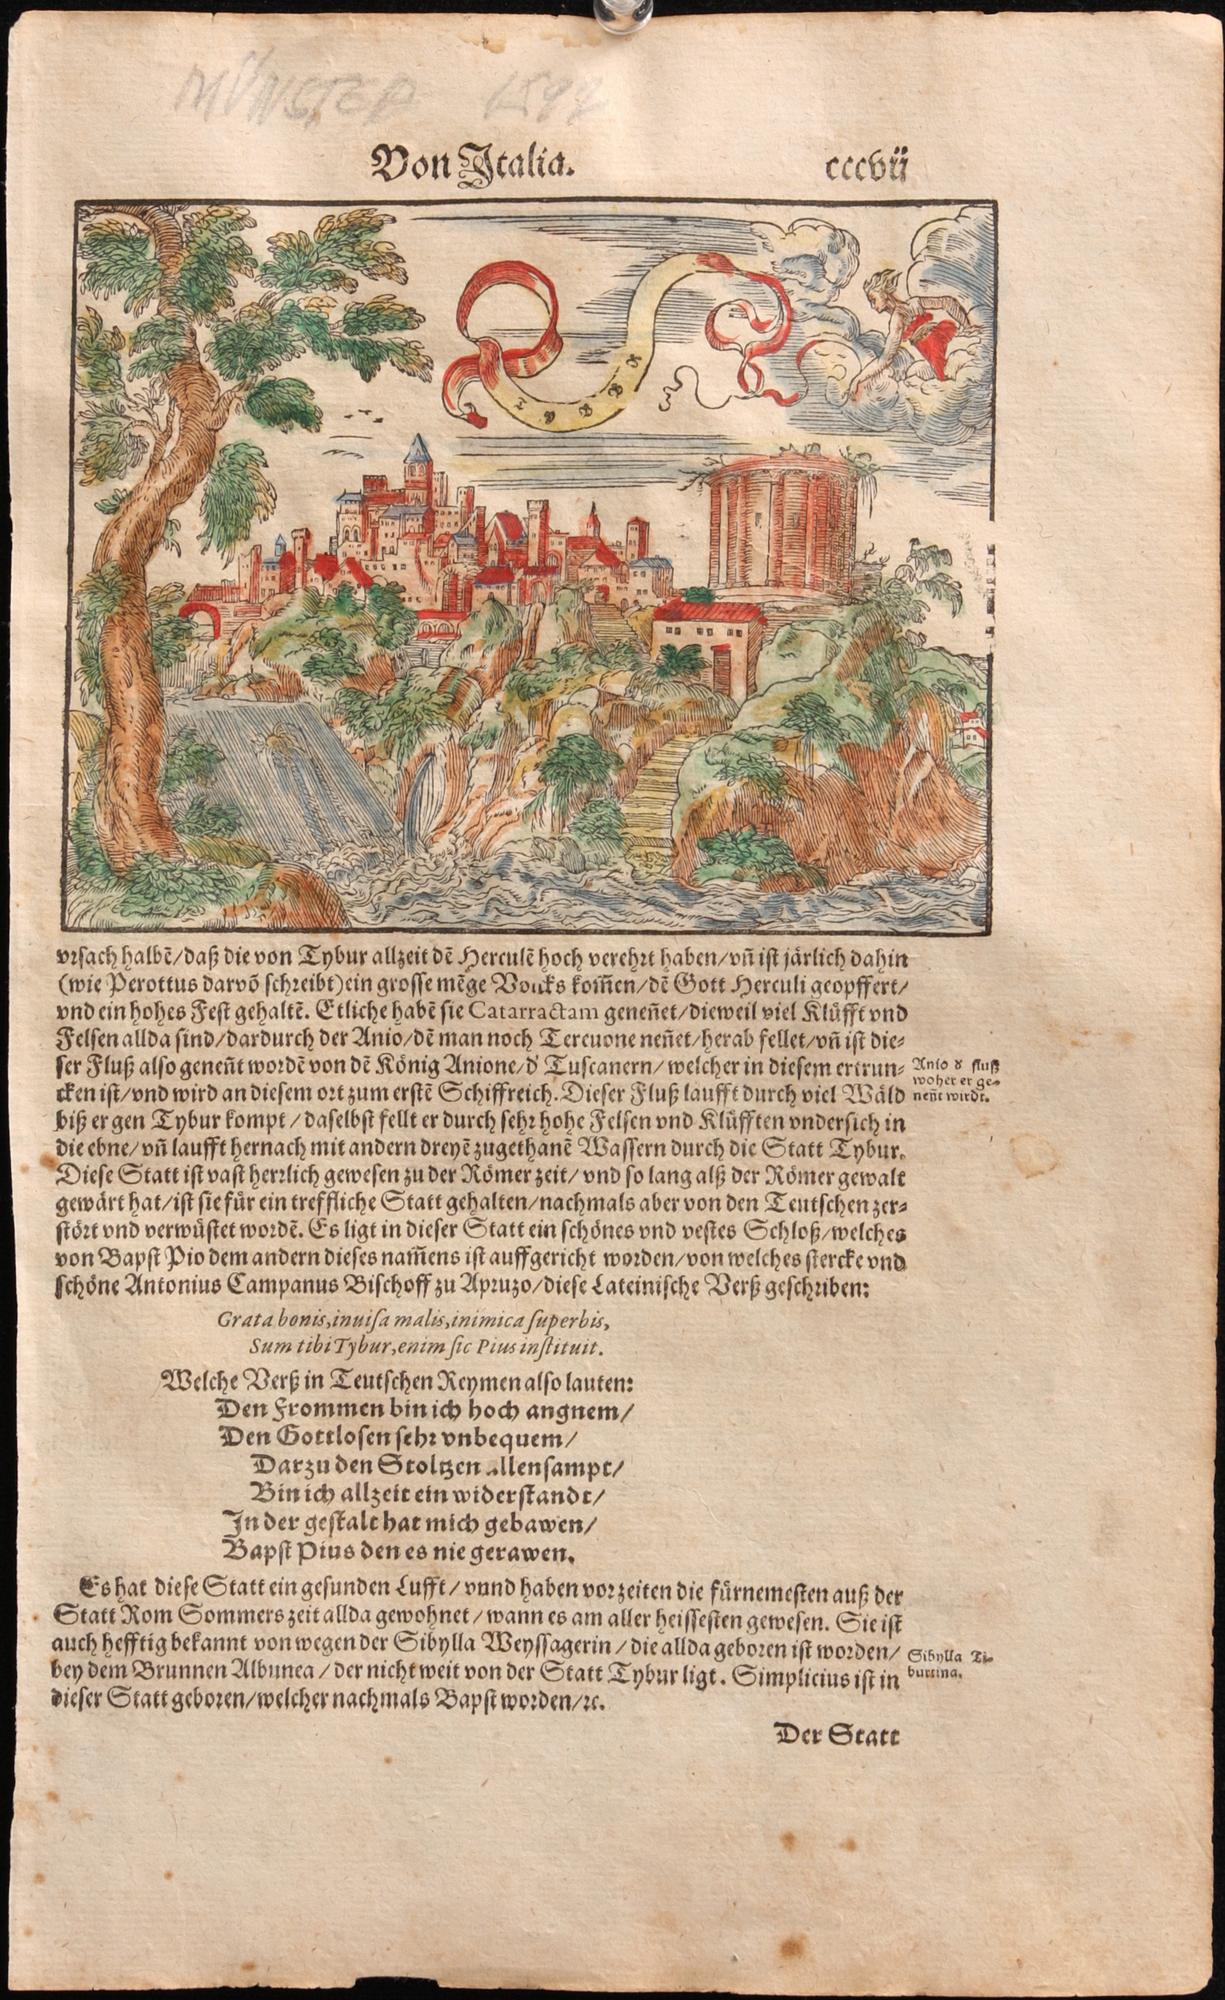 MÜNSTER
Von Italia.
cccvii
T Y B V R
vrsach halbẽ/daß die von Tybur allzeit dẽ Herculẽ hoch verehrt haben/vñ ist järlich dahin
(wie Perottus darvõ schreibt)ein grosse mẽge Volcks kom̃en/dẽ Gott Herculi geopffert/
vnd ein hohes Fest gehaltẽ. Etliche habẽ sie Catarractam geneñet/dieweil viel Klüfft vnd
Felsen allda sind/dardurch der Anio/dẽ man noch Tercuone neñet/herab fellet/vñ ist die-
ser Fluß also geneñt wordẽ von dẽ König Anione/d' Tuscanern/welcher in diesem ertrun-
cken ist/vnd wird an diesem ort zum erstẽ Schiffreich. Dieser Fluß laufft durch viel Wäld
biß er gen Tybur kompt/daselbst fellt er durch sehr hohe Felsen vnd Klüfften vndersich in
die ebne/vñ laufft hernach mit andern dreyẽ zugethanẽ Wassern durch die Statt Tybur.
Diese Statt ist vast herrlich gewesen zu der Römer zeit/vnd so lang alß der Römer gewalt
gewärt hat/ist sie für ein treffliche Statt gehalten/nachmals aber von den Teutschen zer-
stört vnd verwüstet wordẽ. Es ligt in dieser Statt ein schönes vnd vestes Schloß/welches
von Bapst Pio dem andern dieses nam̃ens ist auffgericht worden/von welches stercke vnd
schöne Antonius Campanus Bischoff zu Apruzo/diese Lateinische Verß geschriben:
Anio d' fluß
woher er ge-
neñt wirdt.
Grata bonis,inuisa malis,inimica superbis,
Sum tibi Tybur,enim sic Pius instituit.
Welche Verß in Teutschen Reymen also lauten:
Den Frommen bin ich hoch angnem/
Den Gottlosen sehr vnbequem/
Darzu den Stoltzen allensampt/
Bin ich allzeit ein widerstandt/
In der gestalt hat mich gebawen/
Bapst Pius den es nie gerawen.
Es hat diese Statt ein gesunden Lufft/vnnd haben vorzeiten die fürnemesten auß der
Statt Rom Sommers zeit allda gewohnet/wann es am aller heissesten gewesen. Sie ist
auch hefftig bekannt von wegen der Sibylla Weyssagerin/die allda geboren ist worden/
bey dem Brunnen Albunea/der nicht weit von der Statt Tybur ligt. Simplicius ist in
dieser Statt geboren/welcher nachmals Bapst worden/ꝛc.
Sibylla Ti-
burtina.
Der Statt